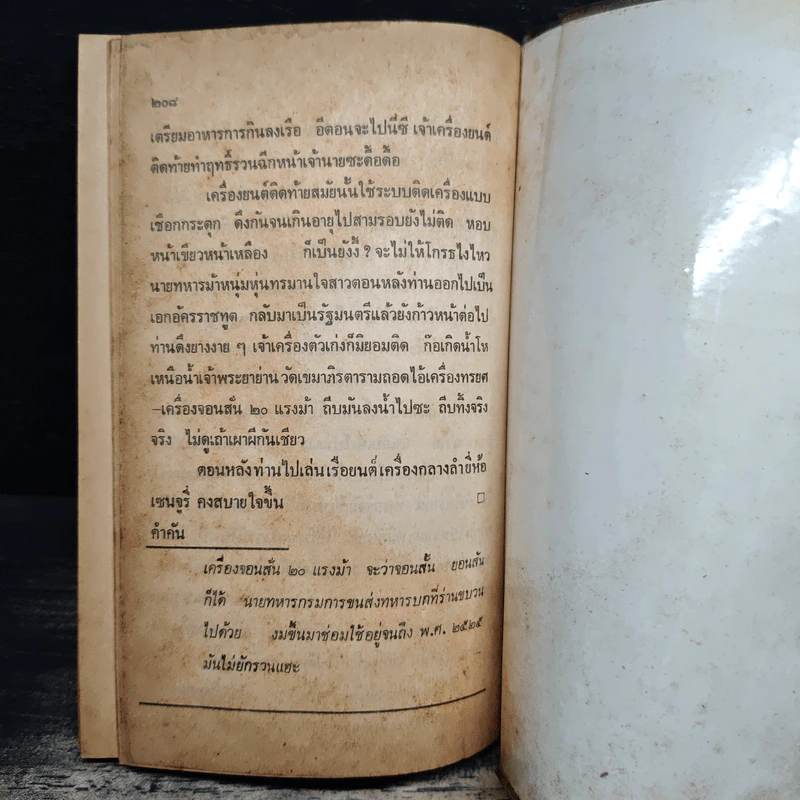 ๒๐๘
เตรียมอาหารการกินลงเรือ อีตอนจะไปนี่ซี เจ้าเครื่องยนต์
ติดท้ายทำฤทธิ์รวนฉีกหน้าเจ้านายซะดื้อดื้อ
เครื่องยนต์ติดท้ายสมัยนั้นใช้ระบบติดเครื่องแบบ
เชือกกระตุก ดึงกันจนเกินอายุไปสามรอบยังไม่ติด หอบ
หน้าเขียวหน้าเหลือง ก็เป็นยังงี้ ? จะไม่ให้โกรธไงไหว
นายทหารม้าหนุ่มหุ่นทรมานใจสาวตอนหลังท่านออกไปเป็น
เอกอัครราชทูต กลับมาเป็นรัฐมนตรีแล้วยังก้าวหน้าต่อไป
ท่านดึงยางงาย ๆ เจ้าเครื่องตัวเก่งก็มิยอมติด ก๊อเกิดน้ำโห
เหนือน้ำเจ้าพระยาย่านวัดเขมาภิรตารามถอดไอ้เครื่องทรยศ
-เครื่องจอนสัน ๒๐ แรงม้า ถีบมันลงน้ำไปซะ ถีบทิ้งจริง
จริง ไม่ดูเถ้าเผาผีกันเชียว
ตอนหลังท่านไปเล่นเรือยนต์เครื่องกลางลำยี่ห้อ
เซนจูรี่ คงสบายใจขึ้น □
คำคัน
เครื่องจอนสัน ๒๐ แรงม้า จะว่าจอนสั้น ยอนสัน
ก็ได้ นายทหารกรมการขนส่งทหารบกที่ร่านขบวน
ไปด้วย งมขึ้นมาซ่อมใช้อยู่จนถึง พ.ศ. ๒๕๒๕
มันไม่ยักรวนแฮะ